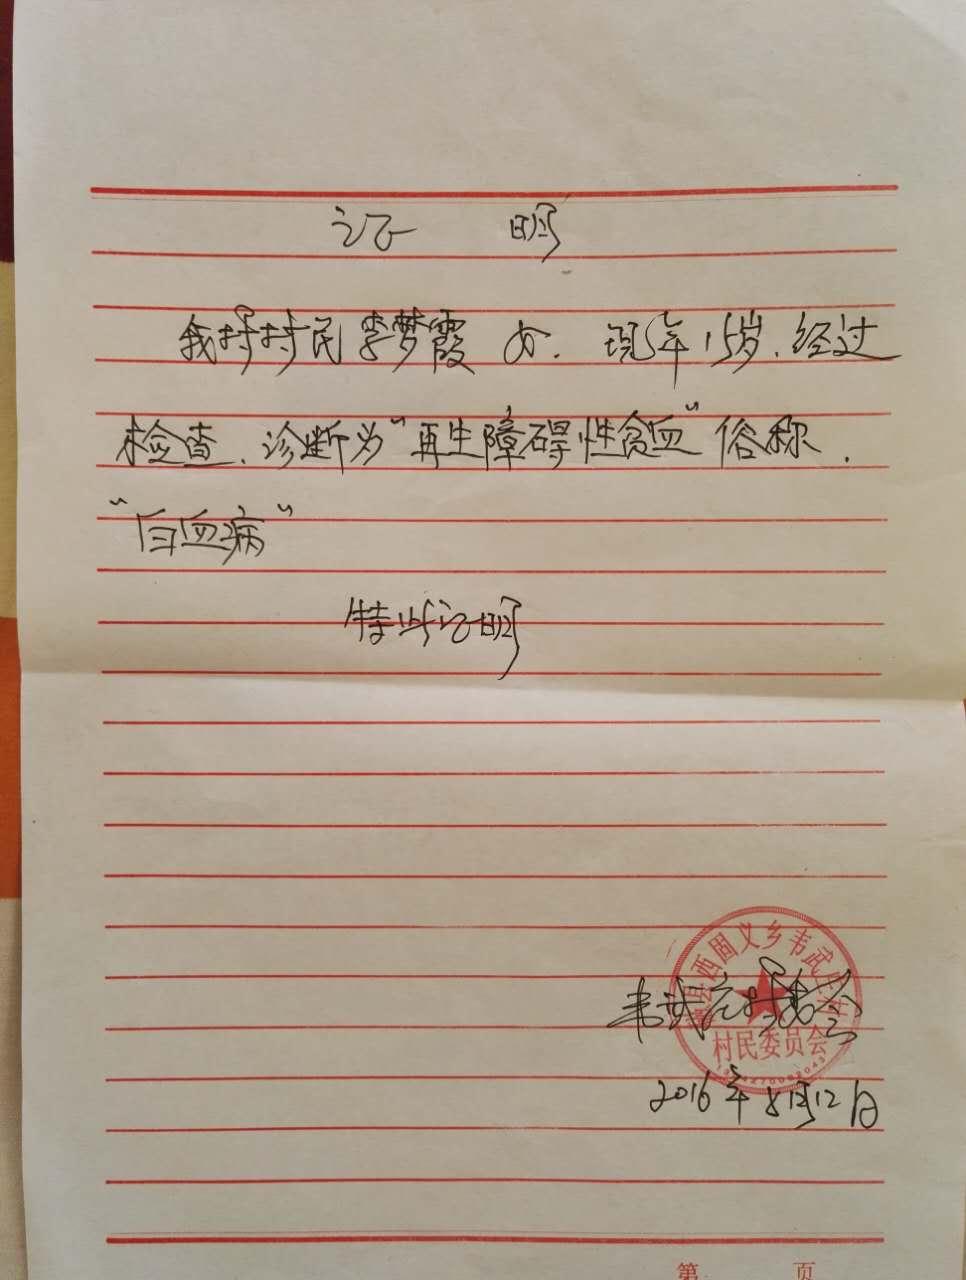 证 明
我村村民李梦霞 女. 现年15岁.经过
检查.诊断为"再生障碍性贫血"俗称.
"白血病"
特此证明
县西固义乡韦武庄村
韦武庄村委会
村民委员会
2016年8月12日
第 页